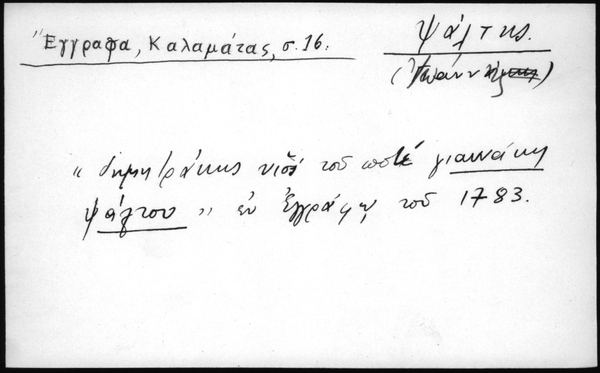 Ἔγγραφα, Καλαμάτας, σ. 16.
Ψάλτης.
(Ἰωάννης)
« δημητράκης υἱός τοῦ ποτέ γιαννάκη
ψάλτου » ἐν ἐγγράφῳ τοῦ 1783.